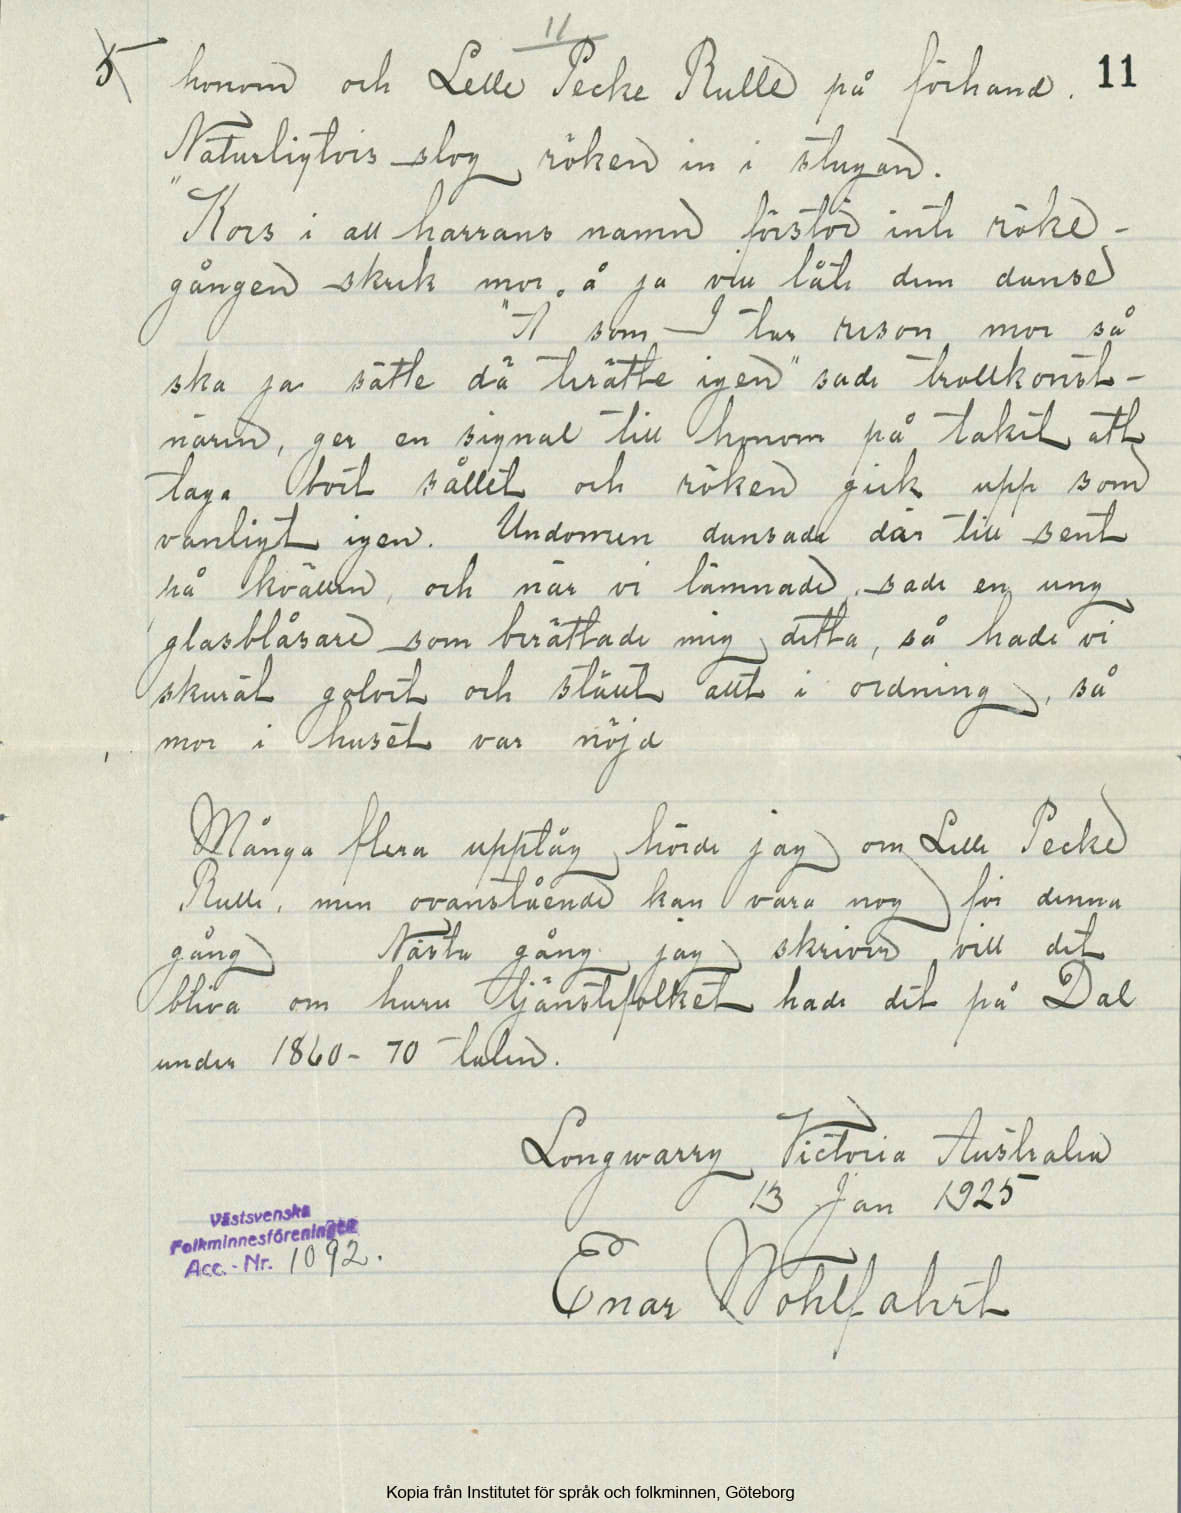 11
5
honom och Lelle Pecke Rulle på förhand. 11
Naturligtvis slog röken in i stugan.
"Kors i all harrans namn förstör inte röke-
gången skrek mor. å ja vill låte dem danse
"A som I tar reson mor så
ska ja sätte dä trätte igen" sade trollkonst-
nären, ger en signal till honom på taket att
taga bort sållet och röken gick upp som
vanligt igen. Undomen dansade där till sent
på kvällen, och när vi lämnade, sade en ung
glasblåsare som berättade mig detta, så hade vi
skurat golvet och ställt allt i ordning, så
mor i huset var nöjd
Många flera upptåg hörde jag om Lelle Pecke
Rulle, men ovanstående kan vara nog för denna
gång Nästa gång jag skriver vill det
bliva om huru tjänstefolket hade det på Dal
under 1860-70 talen.
Longwarry Victoria Australia
13 Jan 1925
Enar Wohlfahrt
Västsvenska
Folkminnesföreningen
Acc.-Nr. 1092.
Kopia från Institutet för språk och folkminnen, Göteborg